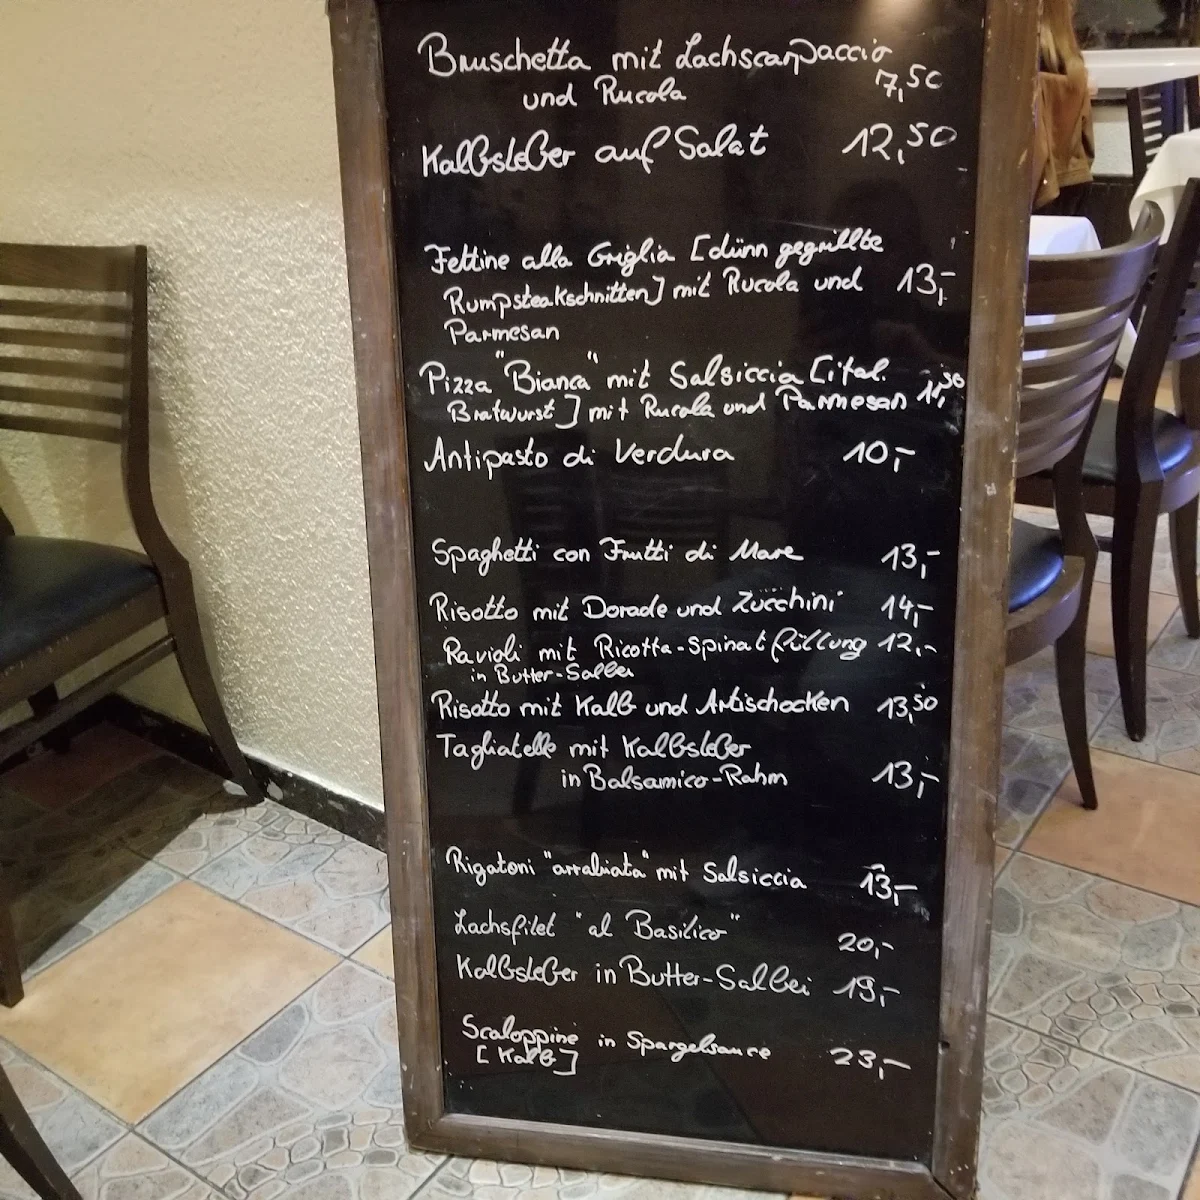 Bruschetta mit Lachscarpaccio
und Rucola 7,50
Kalbsleber auf Salat 12,50
Fettine alla Griglia [dünn gegrillte
Rumpsteakschnitten] mit Rucola und 13,-
Parmesan
Pizza "Bianca" mit Salsiccia [ital.
Bratwurst] mit Rucola und Parmesan 11,50
Antipasto di Verdura 10,-
Spaghetti con Frutti di Mare 13,-
Risotto mit Dorade und Zucchini 14,-
Ravioli mit Ricotta-Spinatfüllung 12,-
in Butter-Salbei
Risotto mit Kalb und Artischocken 13,50
Tagliatelle mit Kalbsleber
in Balsamico-Rahm 13,-
Rigatoni "arrabiata" mit Salsiccia 13,-
Lachsfilet "al Basilico" 20,-
Kalbsleber in Butter-Salbei 19,-
Scaloppine in Spargelsauce 23,-
[Kalb]